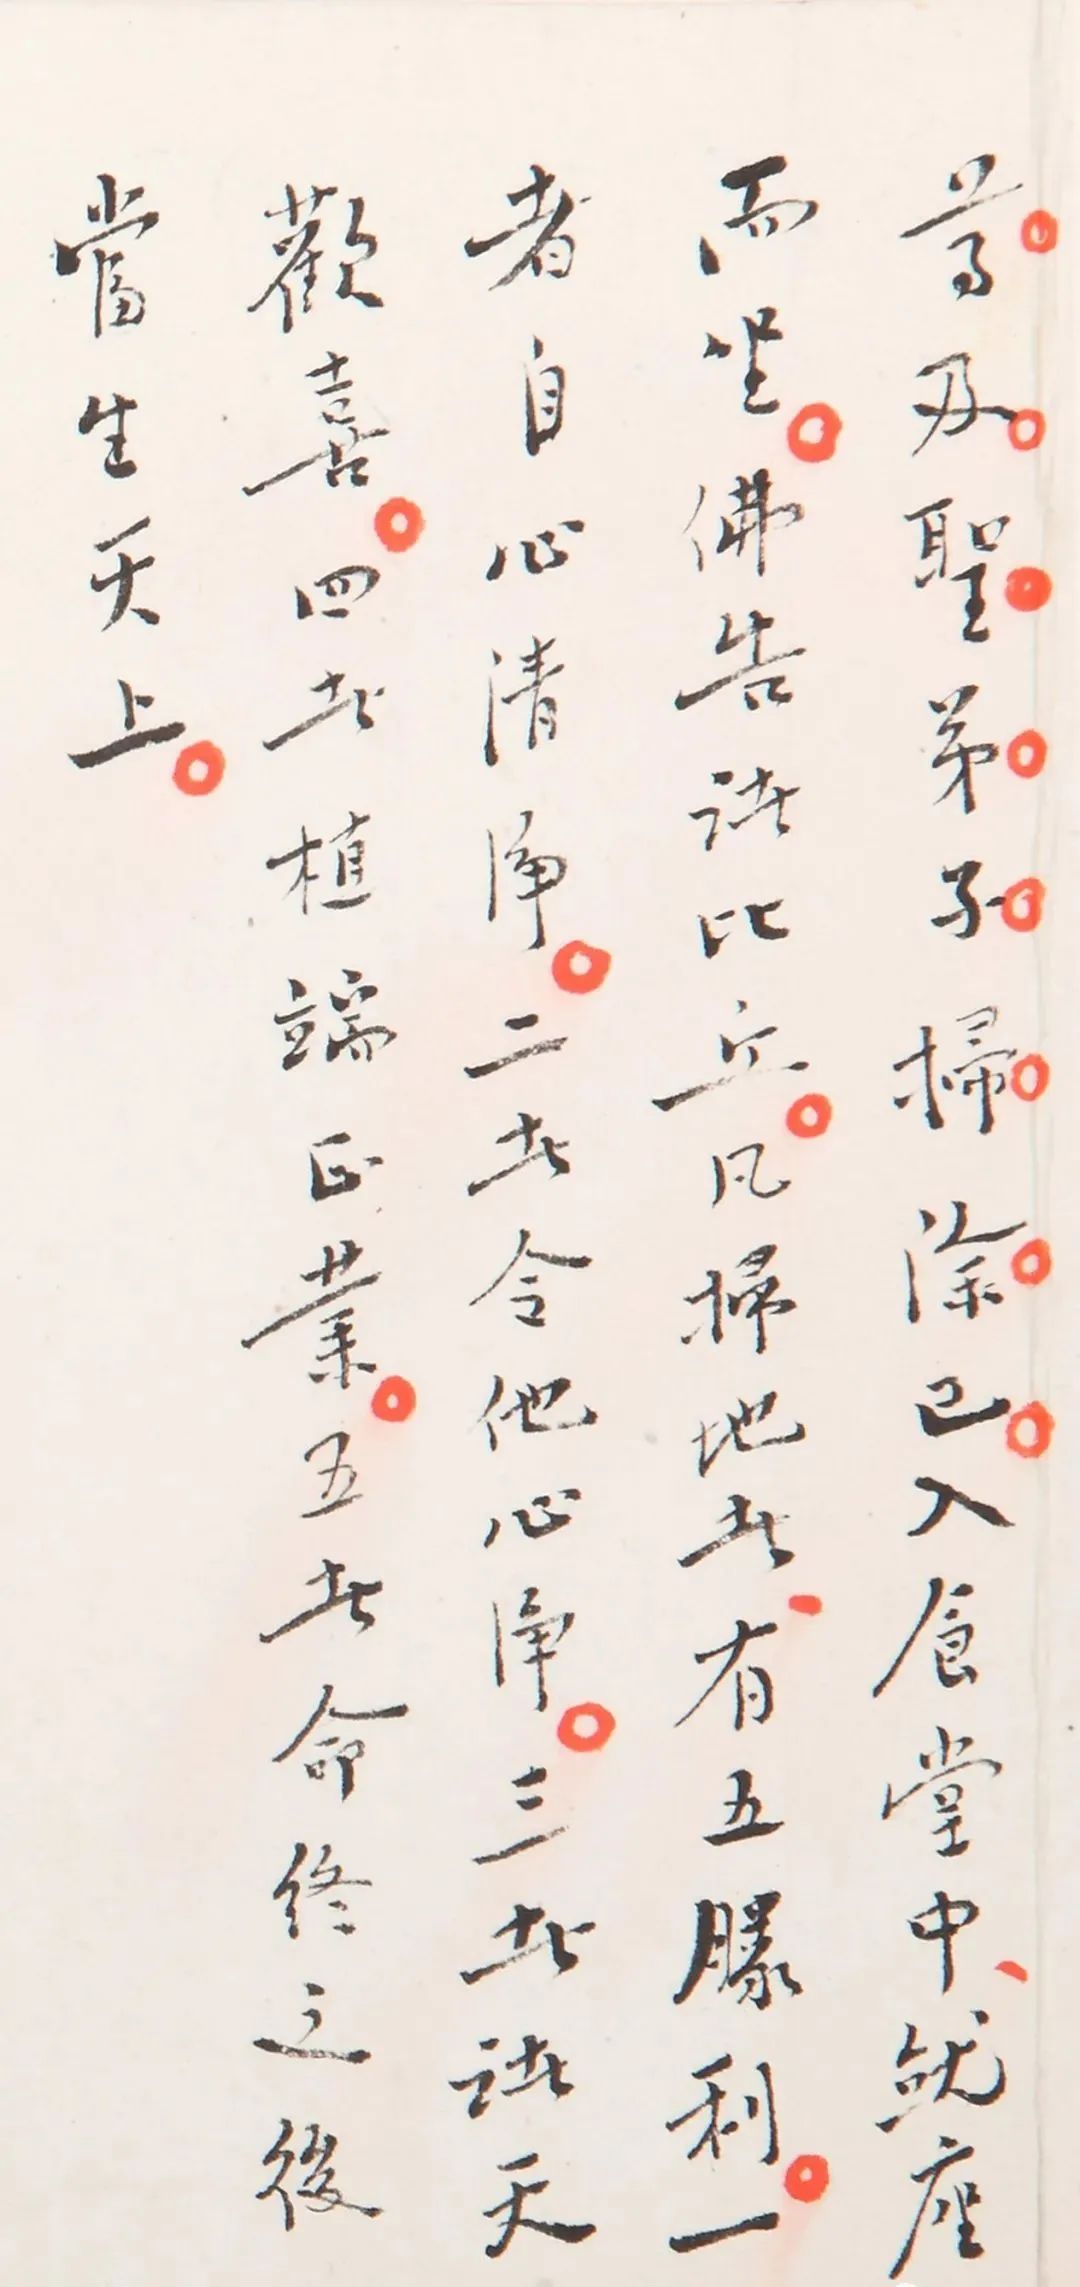 等及聖弟子掃除已入食堂中、就座
而坐。佛告諸比丘。凡掃地者、有五勝利。一
者自心清淨。二者令他心淨。三者諸天
歡喜。四者植端正業。五者命終之後
當生天上。